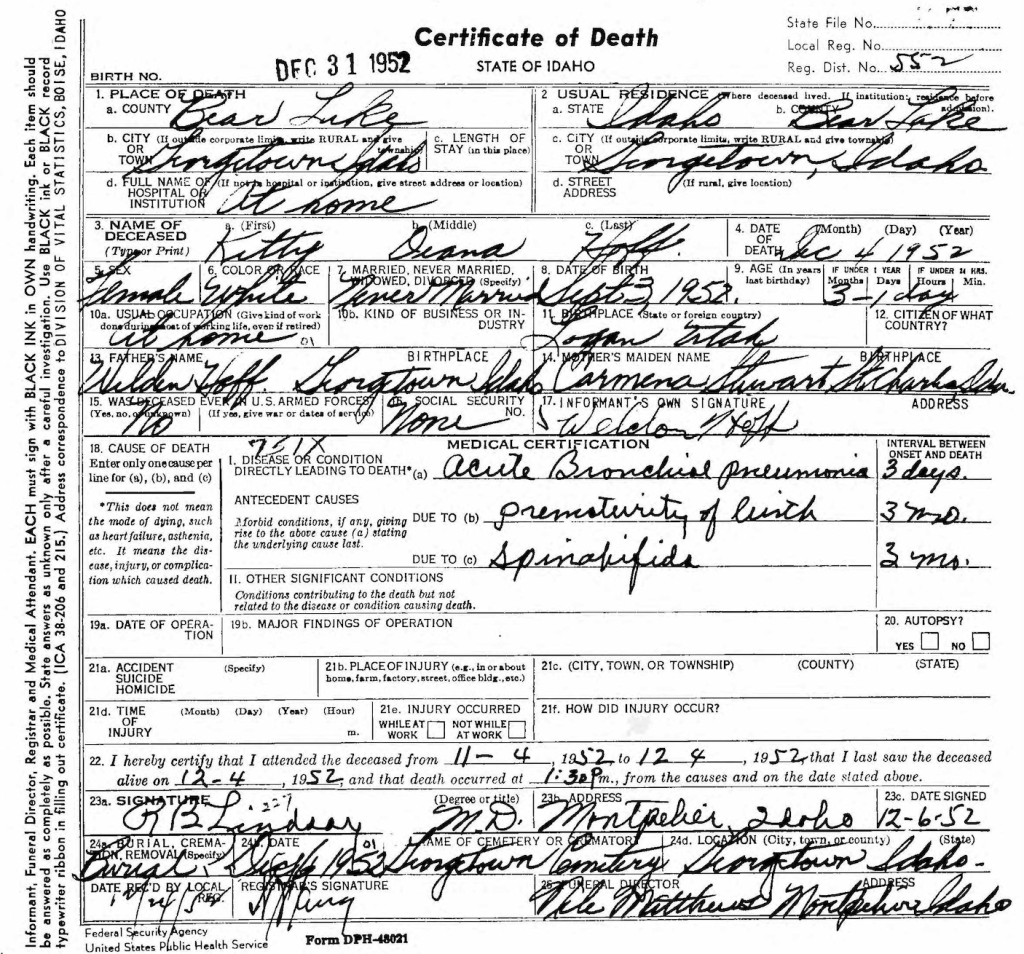 Certificate of Death
STATE OF IDAHO
DEC 31 1952
BIRTH NO.
State File No.
Local Reg. No.
Reg. Dist. No. 552
1. PLACE OF DEATH
a. COUNTY Bear Lake
b. CITY (If outside corporate limits, write RURAL and give township) OR TOWN Georgetown Idaho
c. LENGTH OF STAY (in this place)
d. FULL NAME OF (If not in hospital or institution, give street address or location) HOSPITAL OR INSTITUTION At home
2 USUAL RESIDENCE (Where deceased lived. If institution: residence before admission).
a. STATE Idaho b. COUNTY Bear Lake
c. CITY (If outside corporate limits, write RURAL and give township) OR TOWN Georgetown, Idaho
d. STREET ADDRESS (If rural, give location)
3. NAME OF DECEASED (Type or Print)
a. (First) Kitty b. (Middle) Deana c. (Last) Hoff
4. DATE OF DEATH (Month) (Day) (Year) Dec 4 1952
5. SEX Female
6. COLOR OR RACE White
7. MARRIED, NEVER MARRIED, WIDOWED, DIVORCED (Specify) Never Married
8. DATE OF BIRTH Sept 3, 1952.
9. AGE (In years last birthday) IF UNDER 1 YEAR Months Days IF UNDER 24 HRS. Hours Min. 3-1 day
10a. USUAL OCCUPATION (Give kind of work done during most of working life, even if retired) At home 01
10b. KIND OF BUSINESS OR INDUSTRY
11. BIRTHPLACE (State or foreign country) Logan Utah
12. CITIZEN OF WHAT COUNTRY?
13. FATHER'S NAME BIRTHPLACE Wilden Hoff. Georgtown Idaho
14. MOTHER'S MAIDEN NAME BIRTHPLACE Carmena Stewart St. Charles Idaho
15. WAS DECEASED EVER IN U.S. ARMED FORCES? (Yes, no, or unknown) (If yes, give war or dates of service) No
16. SOCIAL SECURITY NO. None
17. INFORMANT'S OWN SIGNATURE ADDRESS Weldon Hoff
18. CAUSE OF DEATH
Enter only one cause per line for (a), (b), and (c)
*This does not mean the mode of dying, such as heart failure, asthenia, etc. It means the disease, injury, or complication which caused death.
751X
MEDICAL CERTIFICATION
INTERVAL BETWEEN ONSET AND DEATH
I. DISEASE OR CONDITION DIRECTLY LEADING TO DEATH* (a) Acute Bronchial pneumonia 3 days.
ANTECEDENT CAUSES
Morbid conditions, if any, giving rise to the above cause (a) stating the underlying cause last.
DUE TO (b) prematurity of birth 3 mo.
DUE TO (c) Spinabifida 3 mo.
II. OTHER SIGNIFICANT CONDITIONS
Conditions contributing to the death but not related to the disease or condition causing death.
19a. DATE OF OPERATION
19b. MAJOR FINDINGS OF OPERATION
20. AUTOPSY?
YES NO
21a. ACCIDENT SUICIDE HOMICIDE (Specify)
21b. PLACE OF INJURY (e.g., in or about home, farm, factory, street, office bldg., etc.)
21c. (CITY, TOWN, OR TOWNSHIP) (COUNTY) (STATE)
21d. TIME OF INJURY (Month) (Day) (Year) (Hour) m.
21e. INJURY OCCURRED WHILE AT WORK NOT WHILE AT WORK
21f. HOW DID INJURY OCCUR?
22. I hereby certify that I attended the deceased from 11-4, 1952 to 12 4, 1952, that I last saw the deceased
alive on 12-4, 1952, and that death occurred at 1:30 P m., from the causes and on the date stated above.
23a. SIGNATURE (Degree or title) R B Lindsay M.D.
23b. ADDRESS Montpelier, Idaho
23c. DATE SIGNED 12-6-52
24a. BURIAL, CREMATION, REMOVAL (Specify) Burial
24b. DATE 1952 01
NAME OF CEMETERY OR CREMATORY Georgtown Cemetery
24d. LOCATION (City, town, or county) (State) Georgtown Idaho-
DATE REC'D BY LOCAL REG.
REGISTRAR'S SIGNATURE
25. FUNERAL DIRECTOR ADDRESS Matthews Montpelier Idaho
Federal Security Agency
United States Public Health Service
Form DPH-48021
Informant, Funeral Director, Registrar and Medical Attendant. EACH must sign with BLACK INK in OWN handwriting. Each item should
be answered as completely as possible. State answers as unknown only after a careful investigation. Use BLACK ink or BLACK record
typewriter ribbon in filling out certificate. (ICA 38-206 and 215.) Address correspondence to DIVISION OF VITAL STATISTICS, BOISE, IDAHO